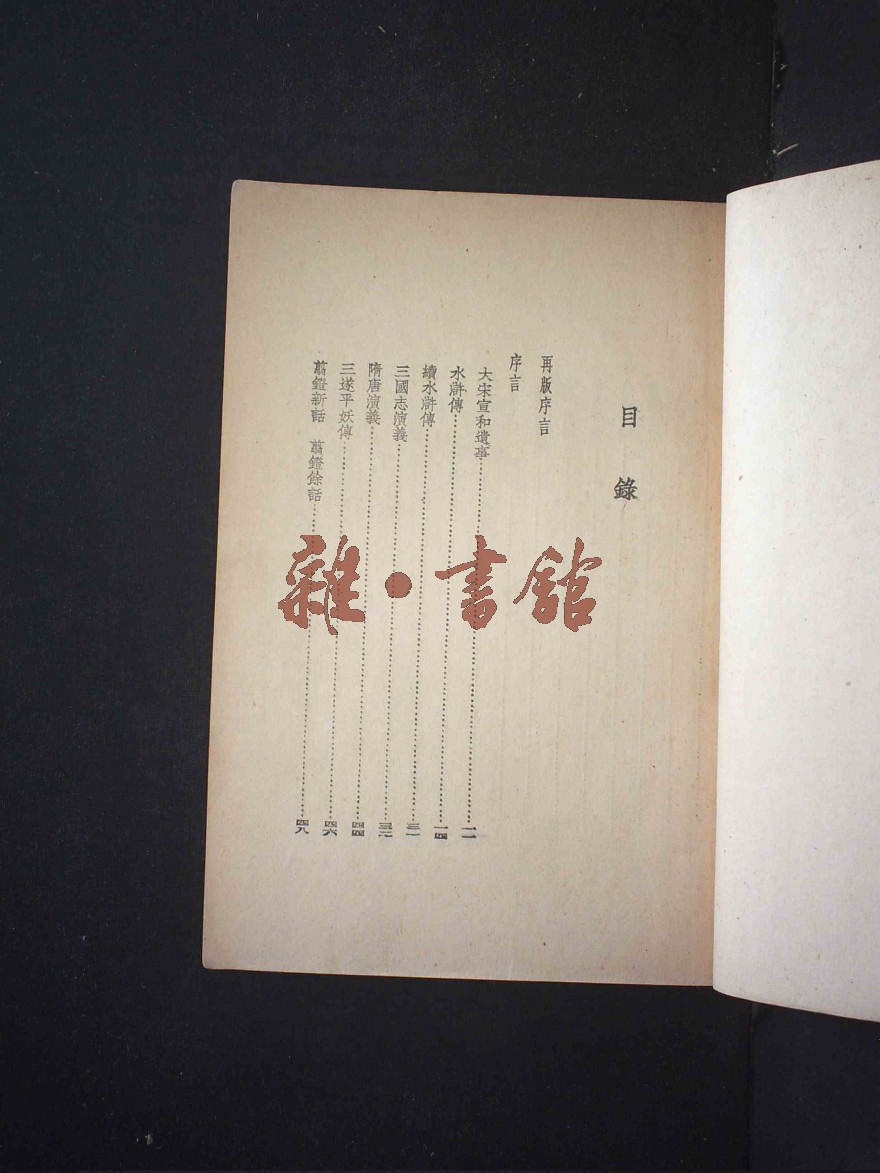 目錄
再版序言
序言
大宋宣和遺事……一一
水滸傳……一四
續水滸傳……
三國志演義……
隋唐演義……四四
三遂平妖傳……四六
翦鐙新話　翦鐙餘話……四八
雜·書館